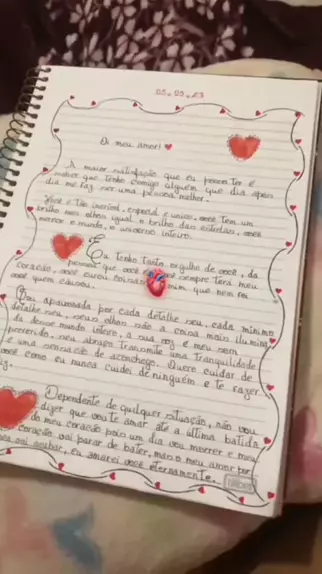 05.05.23
Oi meu amor!
A maior satisfação que eu posso ter é
saber que tenho comigo alguém que dia após
dia me faz ser uma pessoa melhor.
Você é tão incrível, especial e único, você tem um
brilho nos olhos igual o brilho das estrelas, você
merece o mundo, o universo inteiro.
Eu tenho tanto orgulho de você, da
pessoa que você é, você sempre terá meu
coração, você curou coisas mim que nem foi
você quem causou.
Sou apaixonada por cada detalhe seu, cada mínimo
detalhe seu, seus olhos são a coisa mais ilumin
da desse mundo inteiro, a sua voz é meu som
preferido, seu abraço transmite uma tranquilidade
e uma sensação de aconchego. Quero cuidar de
você como eu nunca cuidei de ninguém e te fazer
Dependente de qualquer situação, não vou
dizer que vou te amar até a última batida
do meu coração pois um dia vou morrer e meu
coração vai parar de bater, mas o meu amor por
vai acabar, eu amarei você eternamente.